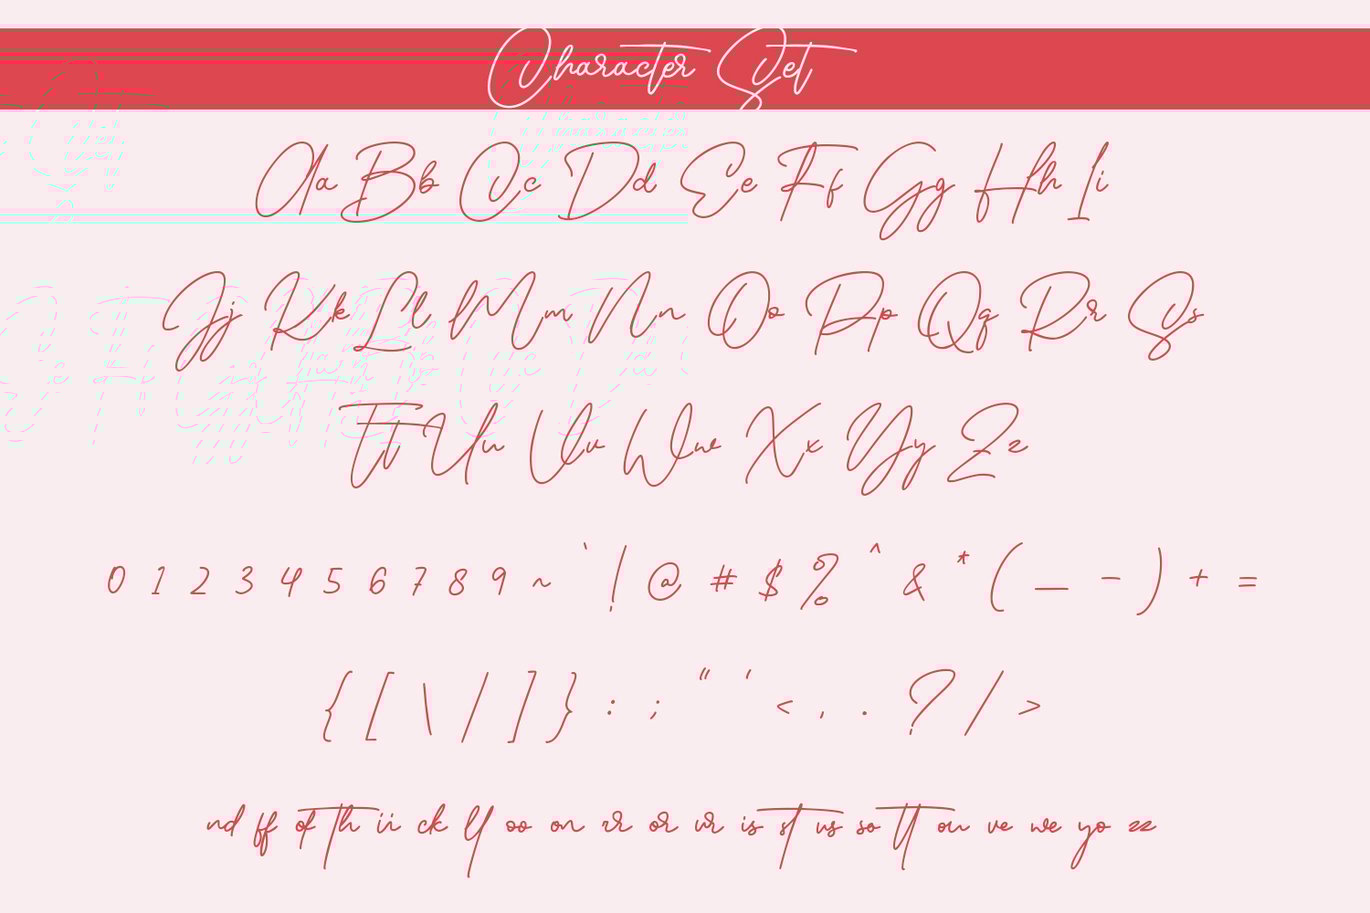 Character Set
Aa Bb Cc Dd Ee Ff Gg Hh Ii
Jj Kk Ll Mm Nn Oo Pp Qq Rr Ss
Tt Uu Vv Ww Xx Yy Zz
0 1 2 3 4 5 6 7 8 9 ~ ` ! @ # $ % ^ & * ( _ - ) + =
{ [ \ | ] } : ; " ' < , . ? / >
nd ff of th ii ck ll oo on rr or ur is st us so tt ou ve we yo zz